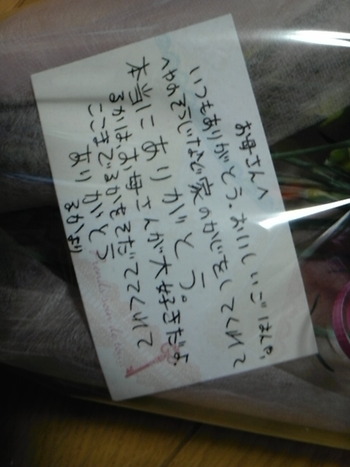 お母さんへ
いつもありがとう。おいしいごはんや、
へやのそうじなど家のかじをしてくれて
本当にありがとう。
るかは、お母さんが大好きだよ
ここまでるかをそだててくれて
ありがとう
るかより